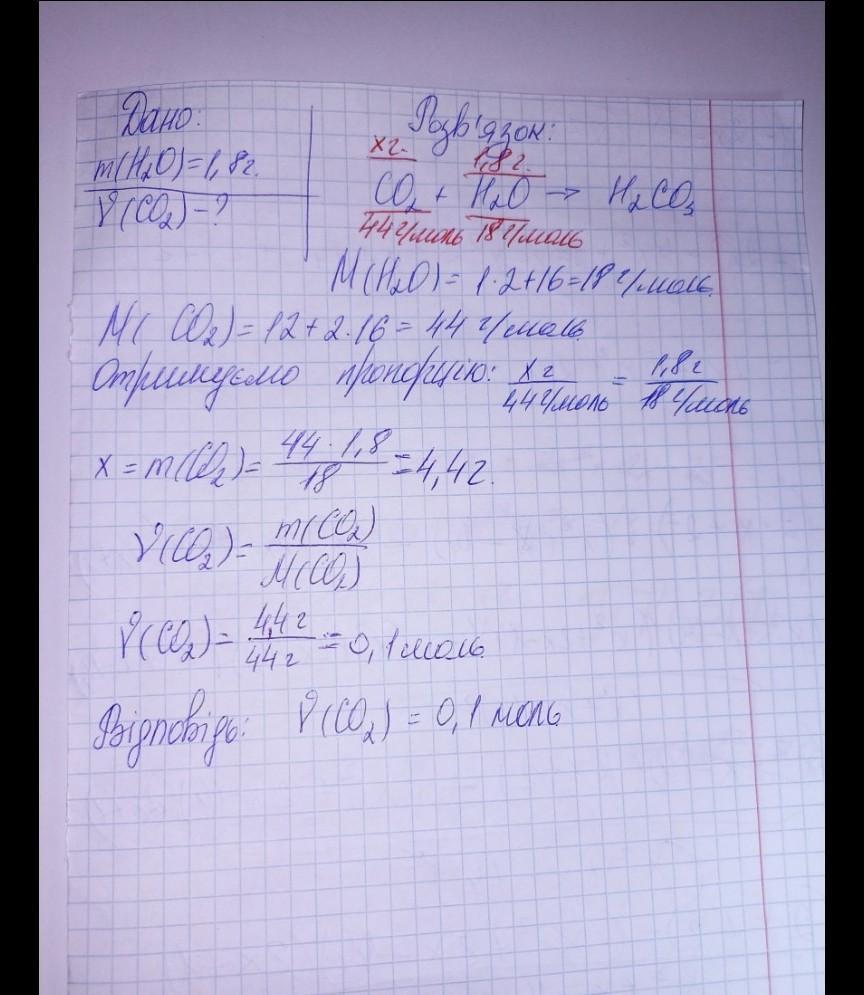 Дано:
Розв'язок:
m(H₂O)=1,8г.
ν(CO₂)-?
xг. 1,8г.
CO₂ + H₂O → H₂CO₃
44г/моль 18г/моль
M(H₂O)= 1·2+16=18г/моль.
M( CO₂)=12+2·16= 44 г/моль.
Отримуємо пропорцію: xг/44г/моль = 1,8г/18г/моль
x = m(CO₂)= 44·1,8/18 =4,4г.
ν(CO₂)= m(CO₂)/M(CO₂)
ν(CO₂)= 4,4г/44г = 0,1моль.
Відповідь: ν(CO₂) = 0,1 моль